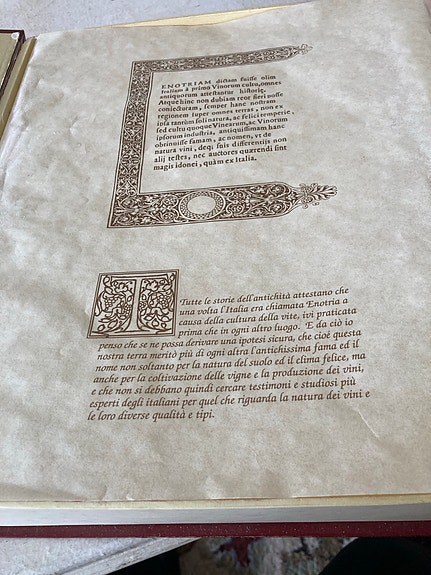 ENOTRIAM dictam fuisse olim
Italiam à primo Vinorum cultu, omnes
antiquorum attestantur historiȩ.
Atque hinc non dubiam reor fieri posse
coniecturam, semper hanc nostram
regionem super omnes terras, non ex
ipsa tantùm soli natura, ac felici temperie,
sed cultu quoque Vinearum, ac Vinorum
ipsorum industria, antiquissimam hanc
obtinuisse famam, ac nomen, vt de
natura vini, deq; suis differentijs non
alij testes, nec auctores quærendi sint
magis idonei, quàm ex Italia.
T Tutte le storie dell'antichità attestano che
una volta l'Italia era chiamata Enotria a
causa della cultura della vite, ivi praticata
prima che in ogni altro luogo. E da ciò io
penso che se ne possa derivare una ipotesi sicura, che cioè questa
nostra terra meritò più di ogni altra l'antichissima fama ed il
nome non soltanto per la natura del suolo ed il clima felice, ma
anche per la coltivazione delle vigne e la produzione dei vini,
e che non si debbano quindi cercare testimoni e studiosi più
esperti degli italiani per quel che riguarda la natura dei vini e
le loro diverse qualità e tipi.